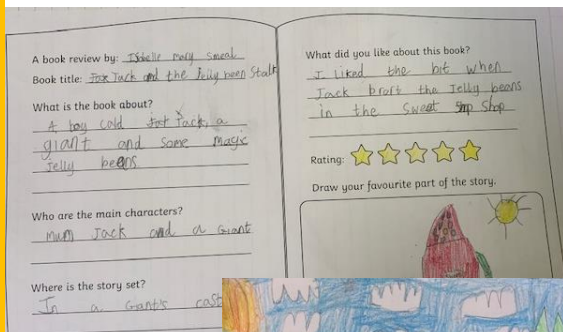 A book review by: Isbelle mary Smeal
Book title: Fox Jack and the Jelly been Stalk
What is the book about?
A boy cold Jack, a
giant and some magic
Jelly beans
Who are the main characters?
Mum Jack and a Giant
Where is the story set?
In a Giant's
What did you like about this book?
I liked the bit when
Jack broft the Jelly beans
in the Sweet Shop
Rating:
Draw your favourite part of the story.